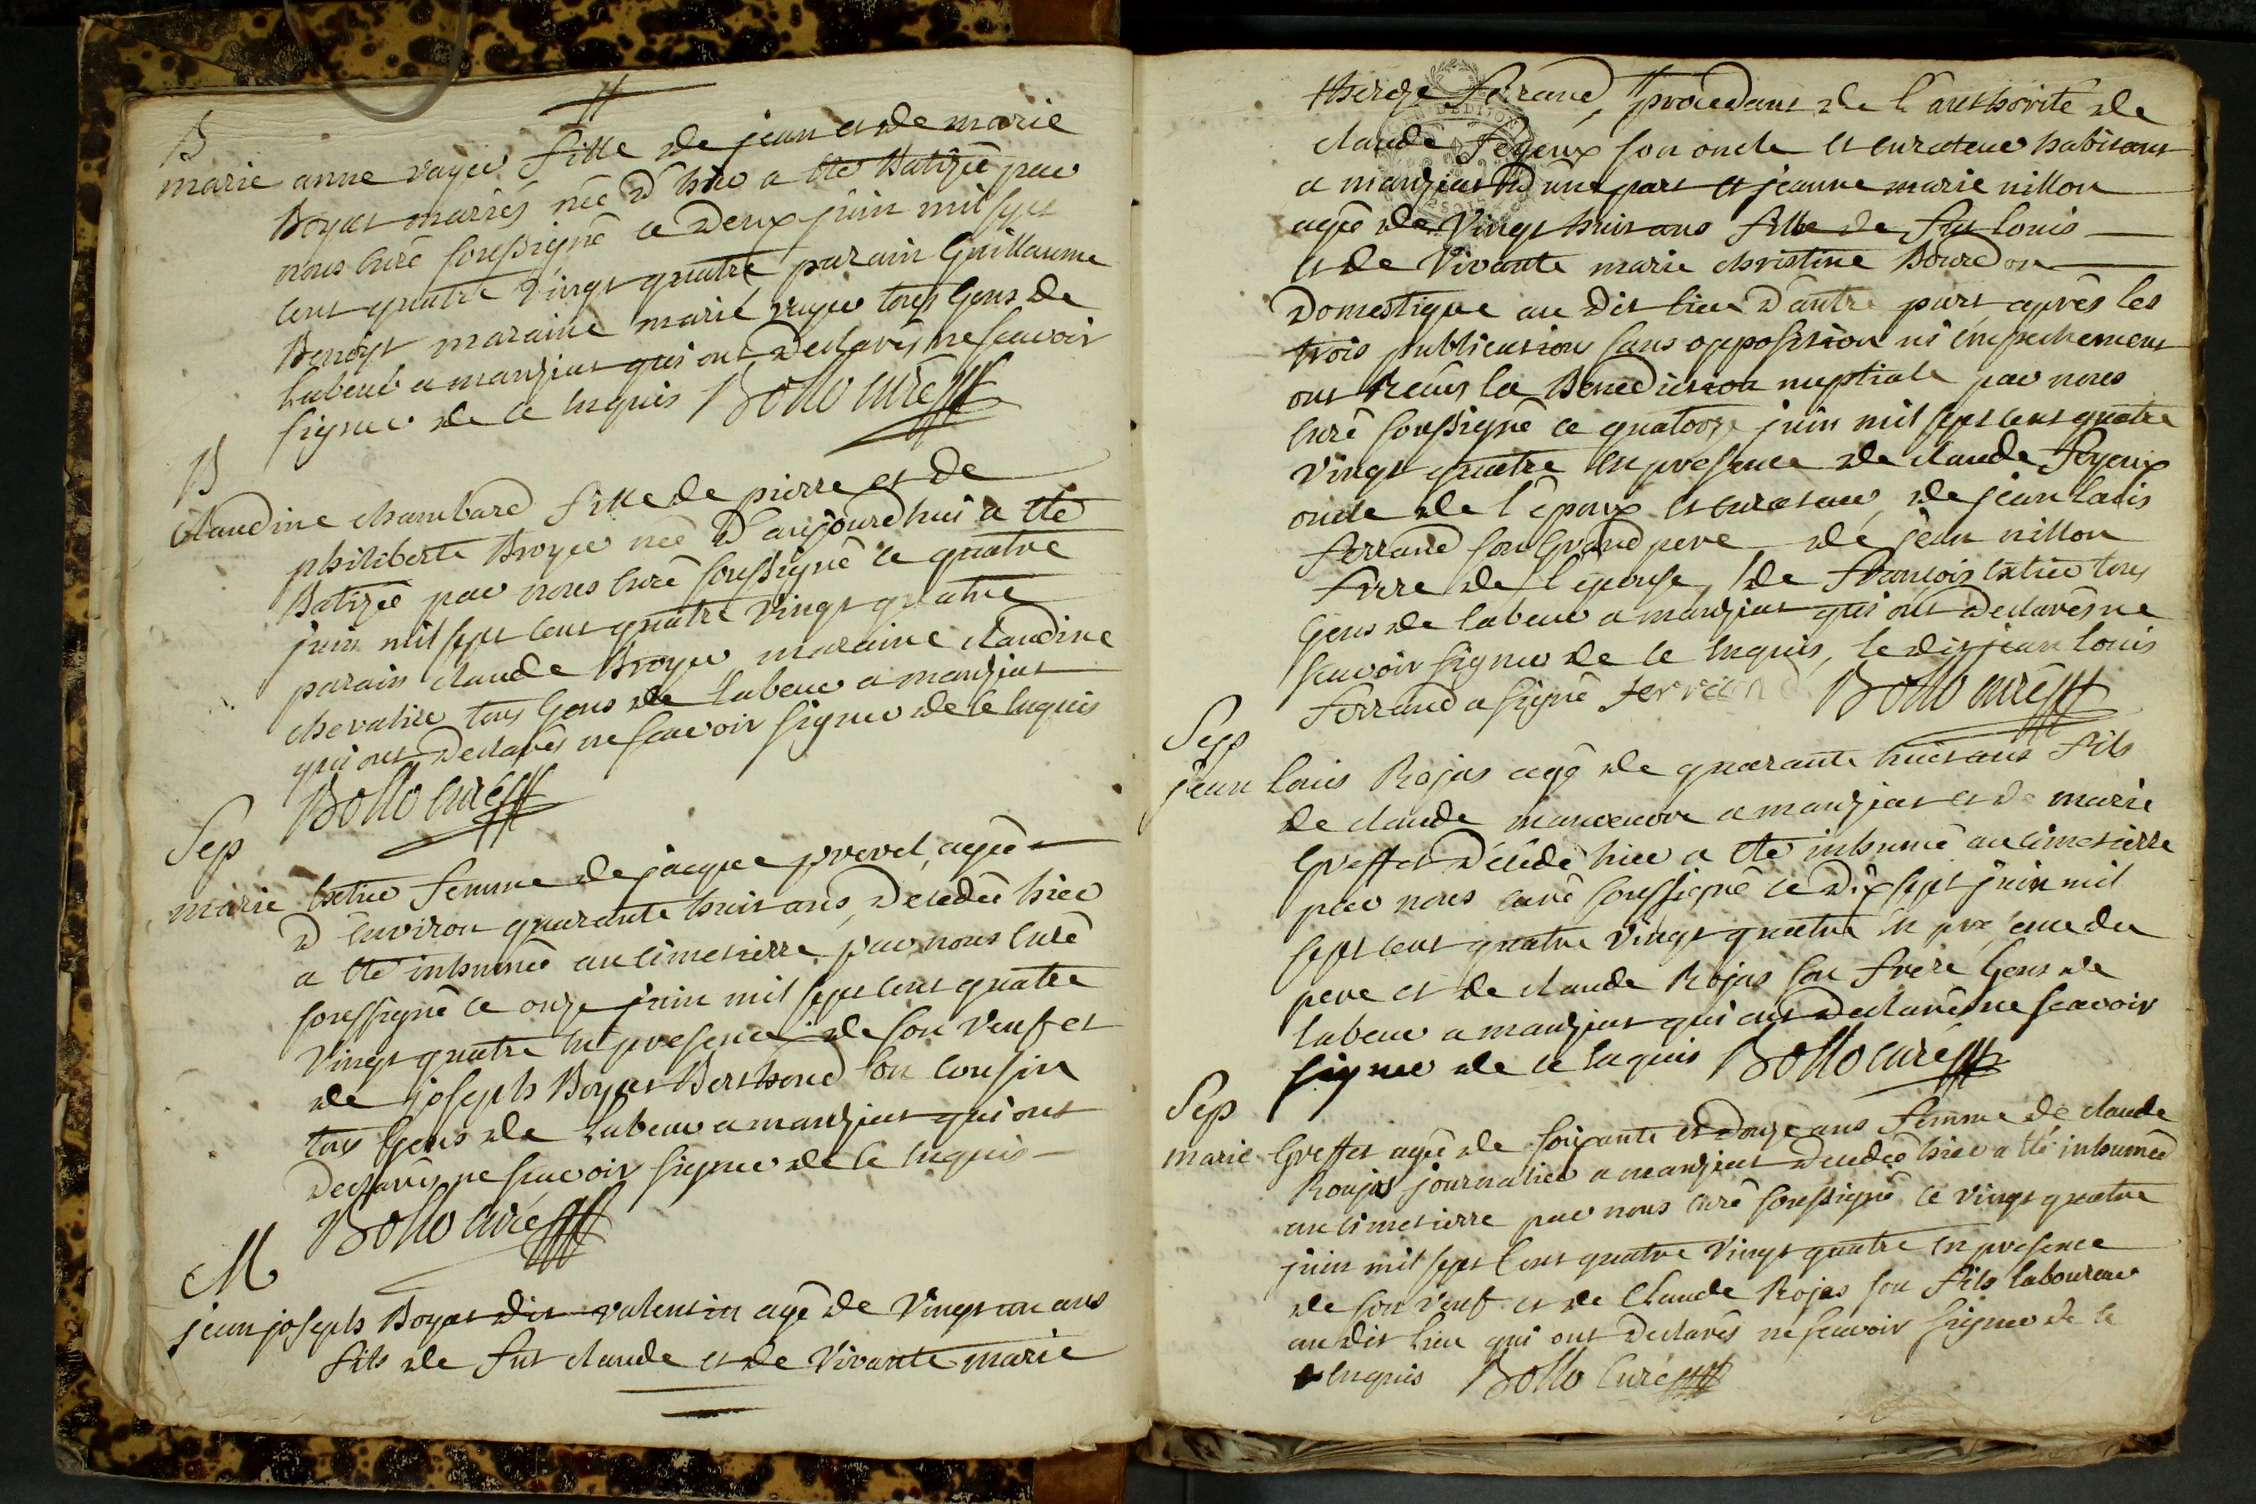 B
marie anne vayer fille de jean et de marie
Boyat mariés née d'hier a été Batizée par
nous curé soussigné ce deux juin mil sept
cent quatre vingt quatre parain Guillaume
Benoist maraine marie vayer tous Gens de
labeur a manziat qui ont declarés ne scavoir
signer de ce enquis Bollo curé
B
Claudine chambard fille de pierre et de
philiberte Broyer née d'aujourdhui a été
Batizée par nous curé soussigné ce quatre
juin mil sept cent quatre vingt quatre
parain claude Broyer maraine claudine
chevalier tous Gens de labeur a manziat
qui ont declarés ne scavoir signer de ce enquis
Bollo curé
Sep
marie Catier femme de jacque prevel, agée
d'environ quarante huit ans, decedée hier
a été inhumée au cimetierre par nous curé
soussigné ce onze juin mil sept cent quatre
vingt quatre en presence de son veuf et
de joseph Boyat Berthoud son cousin
tous Gens de labeur a manziat qui ont
declarés ne scavoir signer de ce enquis
Bollo curé
M
jean joseph Boyat dit valentin agé de vingt un ans
fils de fut claude et de vivante marie
therese ferrand, procedant de l'authorité de
claude feyeux son oncle et curateur habitant
a manziat d'une part et jeanne marie nillon
agée de vingt huit ans fille de fut louis
et de vivante marie christine Bourdon
Domestique au dit lieu d'autre part après les
trois publications sans opposition ni empechement
ont Recus la Benediction nuptiale par nous
curé soussigné ce quatorze juin mil sept cent quatre
vingt quatre en presence de claude feyeux
oncle de l'époux et curateur, de jean louis
ferrand son Grand pere de jean nillon
frere de l'épouse, de francois Catier tous
Gens de labeur a manziat qui ont declarés ne
scavoir signer de ce enquis, le dit jean louis
ferrand a signé ferrand Bollo curé
Sep
jean louis Rojas agé de quarante huit ans fils
de claude manoeuvre a manziat et de marie
Greffet décédé hier a été inhumé au cimetierre
par nous curé soussigné ce dix sept juin mil
sept cent quatre vingt quatre en presence du
pere et de claude Rojas son frere Gens de
labeur a manziat qui ont declarés ne scavoir
signer de ce enquis Bollo curé
Sep
marie Greffet agée de soixante et douze ans femme de claude
Roujas journalier a manziat decedée hier a été inhumée
au cimetierre par nous curé soussigné ce vingt quatre
juin mil sept cent quatre vingt quatre en presence
de son veuf et de Claude Rojas son fils laboureur
au dit lieu qui ont declarés ne scavoir signer de ce
enquis Bollo Curé